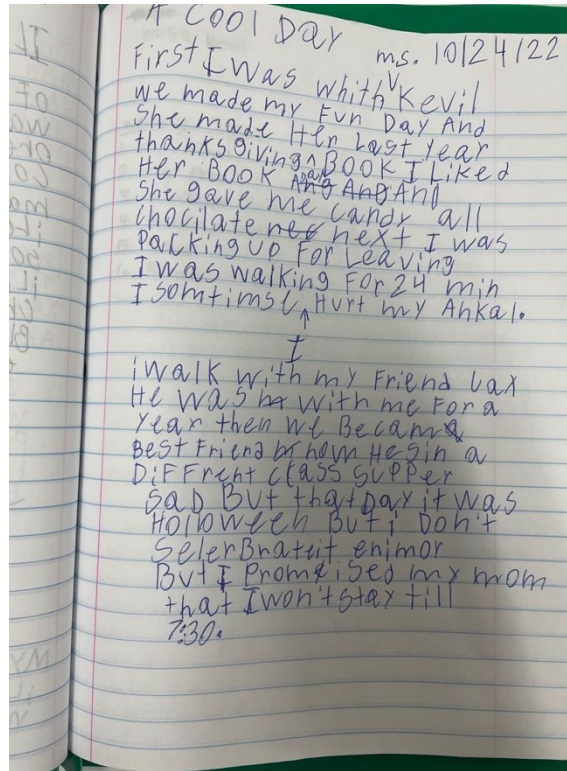 A COOl DaY
ms. 10/24/22
First I Was whith Kevil
we made my Fun Day And
She made Her Last Year
thanksgiving BOOK I Liked
Her BOOK And
She gave me candy all
chocilate next I was
Packing up For Leaving
I was walking For 24 min
I somtimse I Hurt my Ankal.
i walk with my Friend Lax
He was with me For a
Year then we Became
Best Friend Hes in a
DiFFrent class supper
SaD But that day it was
Holloween But i Don't
Seler Brateit enimor
But I Promised my mom
that I won't stay till
7:30.